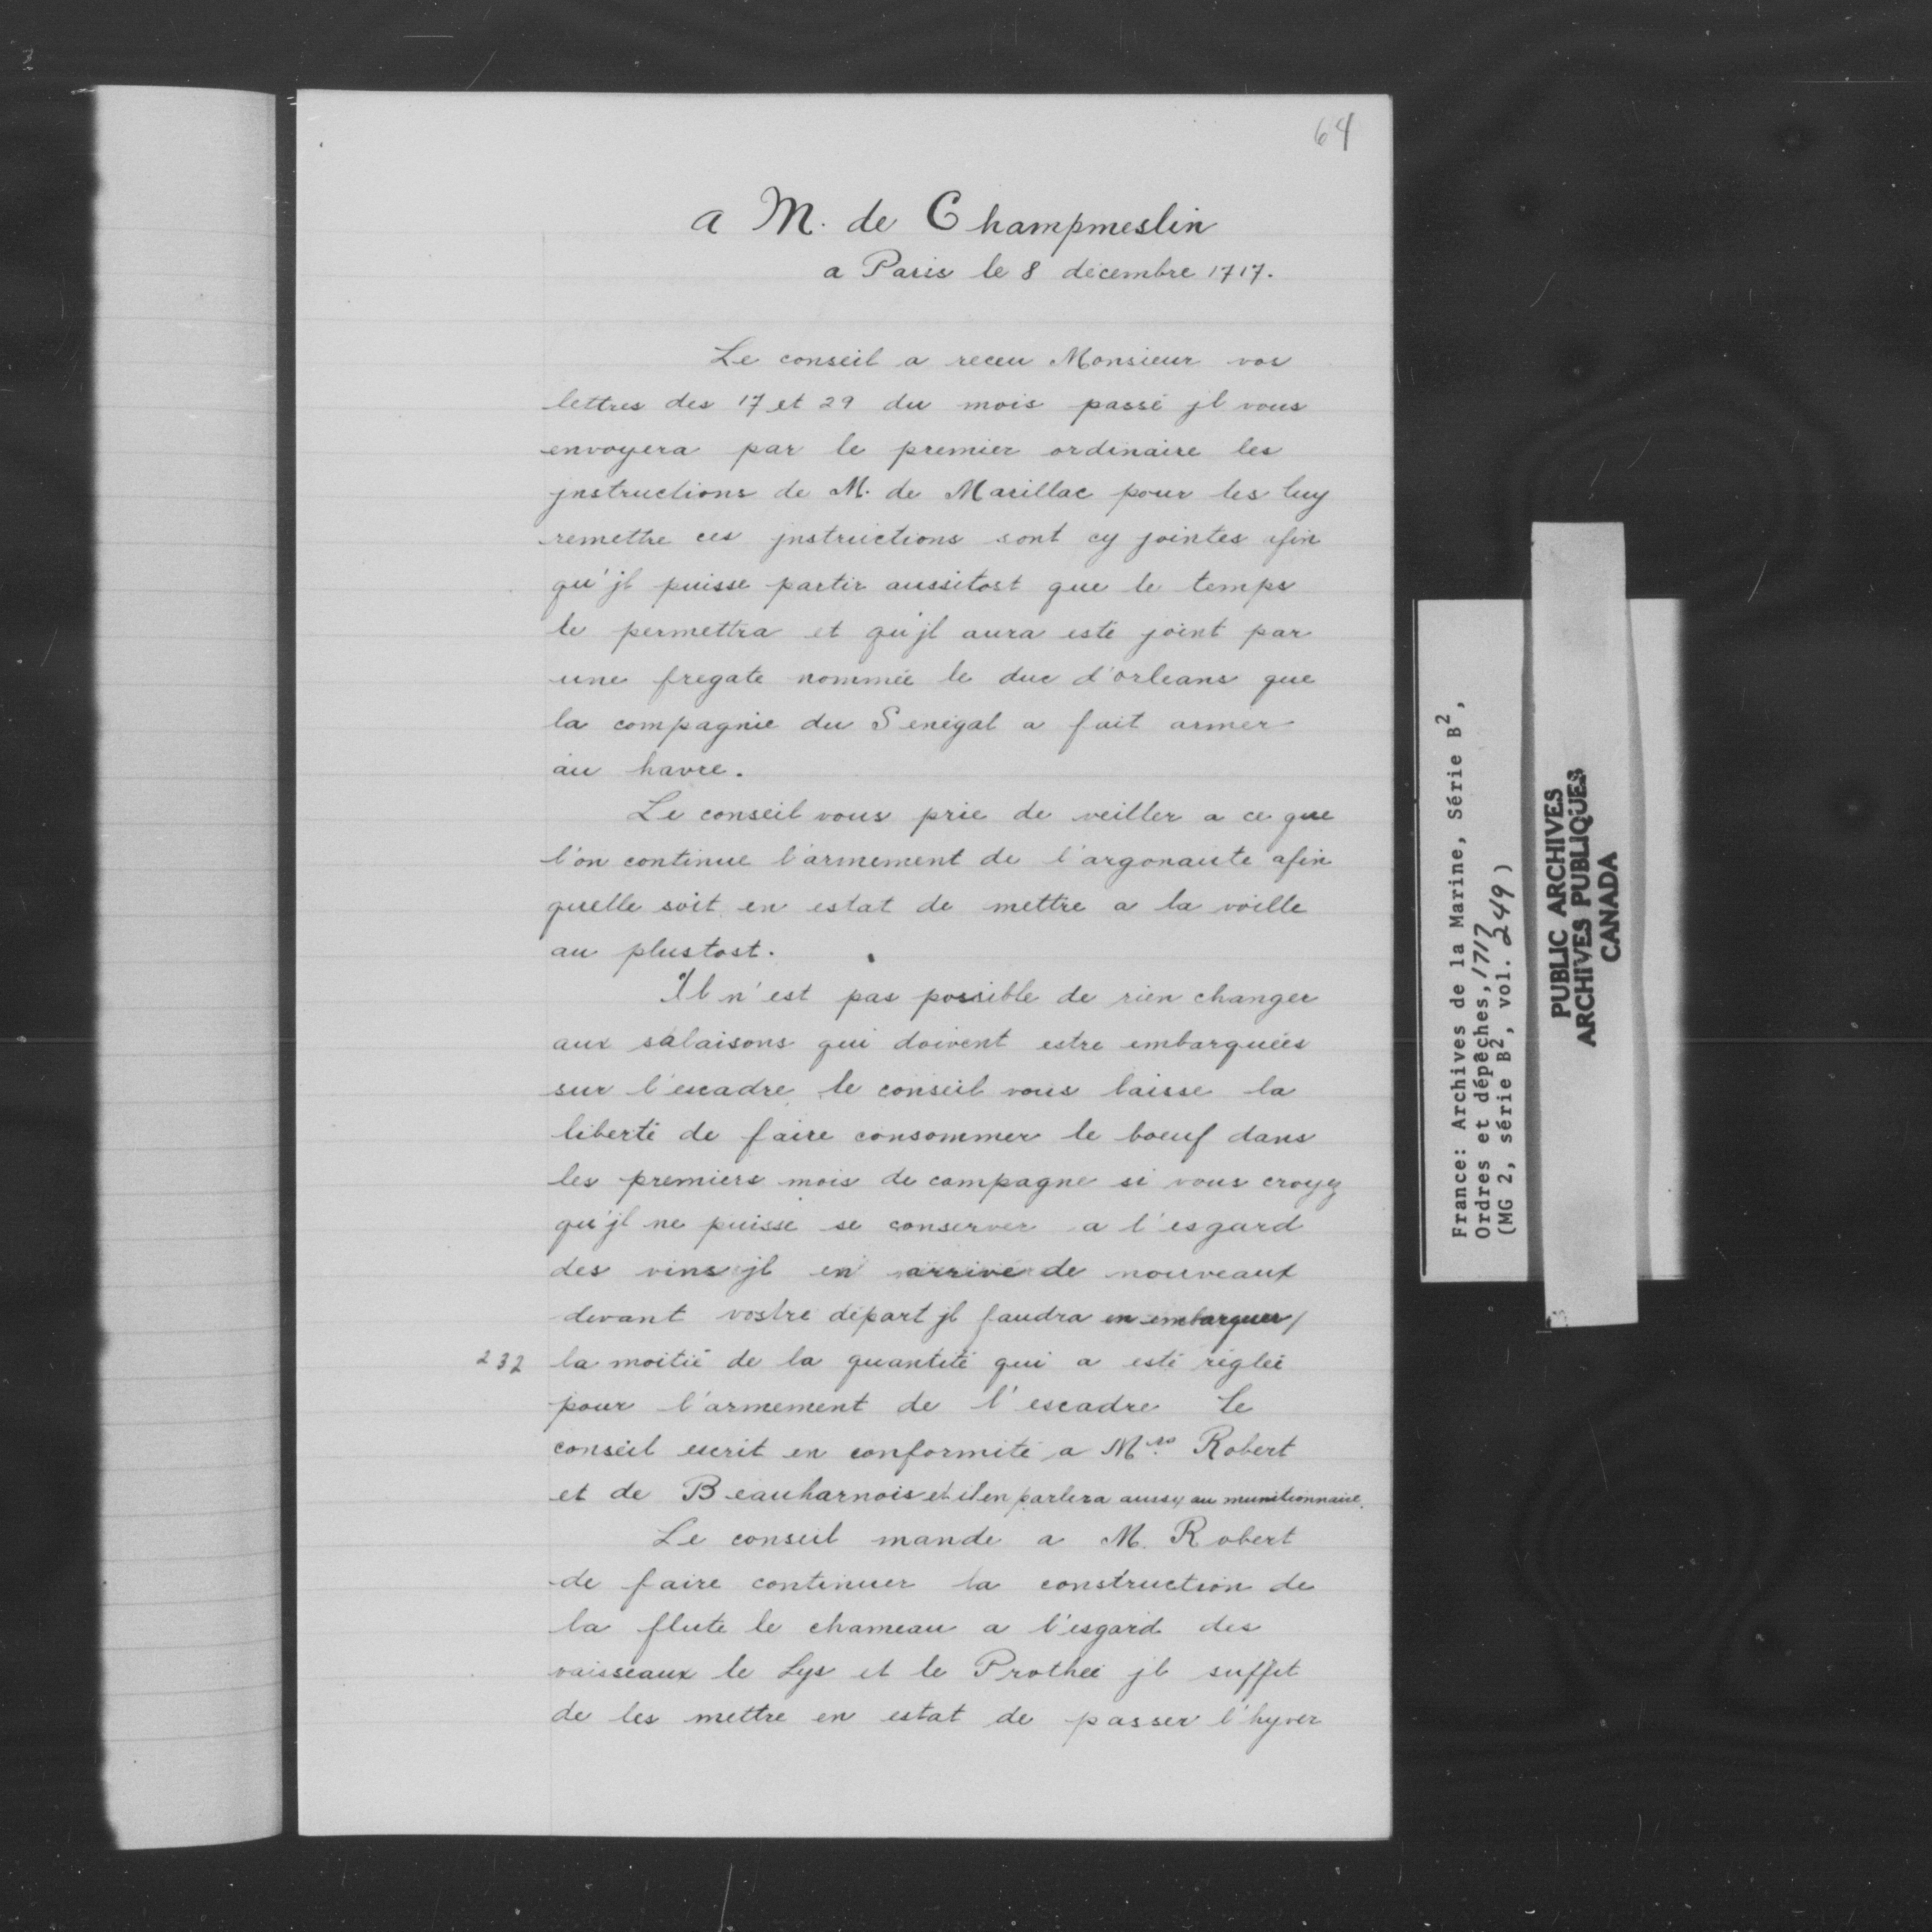 64
a M. de Champmeslin
a Paris le 8 décembre 1717.
Le conseil a receu Monsieur vos
lettres des 17 et 29 du mois passé jl vous
envoyera par le premier ordinaire les
jnstructions de M. de Marillac pour les luy
remettre ces jnstructions sont cy jointes afin
qu'jl puisse partir aussitost que le temps
le permettra et qu'jl aura esté joint par
une fregate nommée le duc d'orleans que
la compagnie du Senégal a fait armer
au havre.
Le conseil vous prie de veiller a ce que
l'on continue l'armement de l'argonaute afin
quelle soit en estat de mettre a la voille
au plustost.
Il n'est pas possible de rien changer
aux salaisons qui doivent estre embarquées
sur l'escadre le conseil vous laisse la
liberté de faire consommer le boeuf dans
les premiers mois de campagne si vous croyez
qu'jl ne puisse se conserver a l'esgard
des vins jl en arrive de nouveaux
devant vostre départ jl faudra en embarquer/
232 la moitié de la quantité qui a esté réglée
pour l'armement de l'escadre Le
conseil escrit en conformité a Mrs. Robert
et de Beauharnois et il en parlera aussy au munitionnaire.
Le conseil mande a M. Robert
de faire continuer la construction de
la flute le chameau a l'esgard des
vaisseaux le Lys et le Prothée jl suffit
de les mettre en estat de passer l'hyver
France: Archives de la Marine, Série B2,
Ordres et dépêches, 1717
(MG 2, série B2, vol. 249)
PUBLIC ARCHIVES
ARCHIVES PUBLIQUES
CANADA